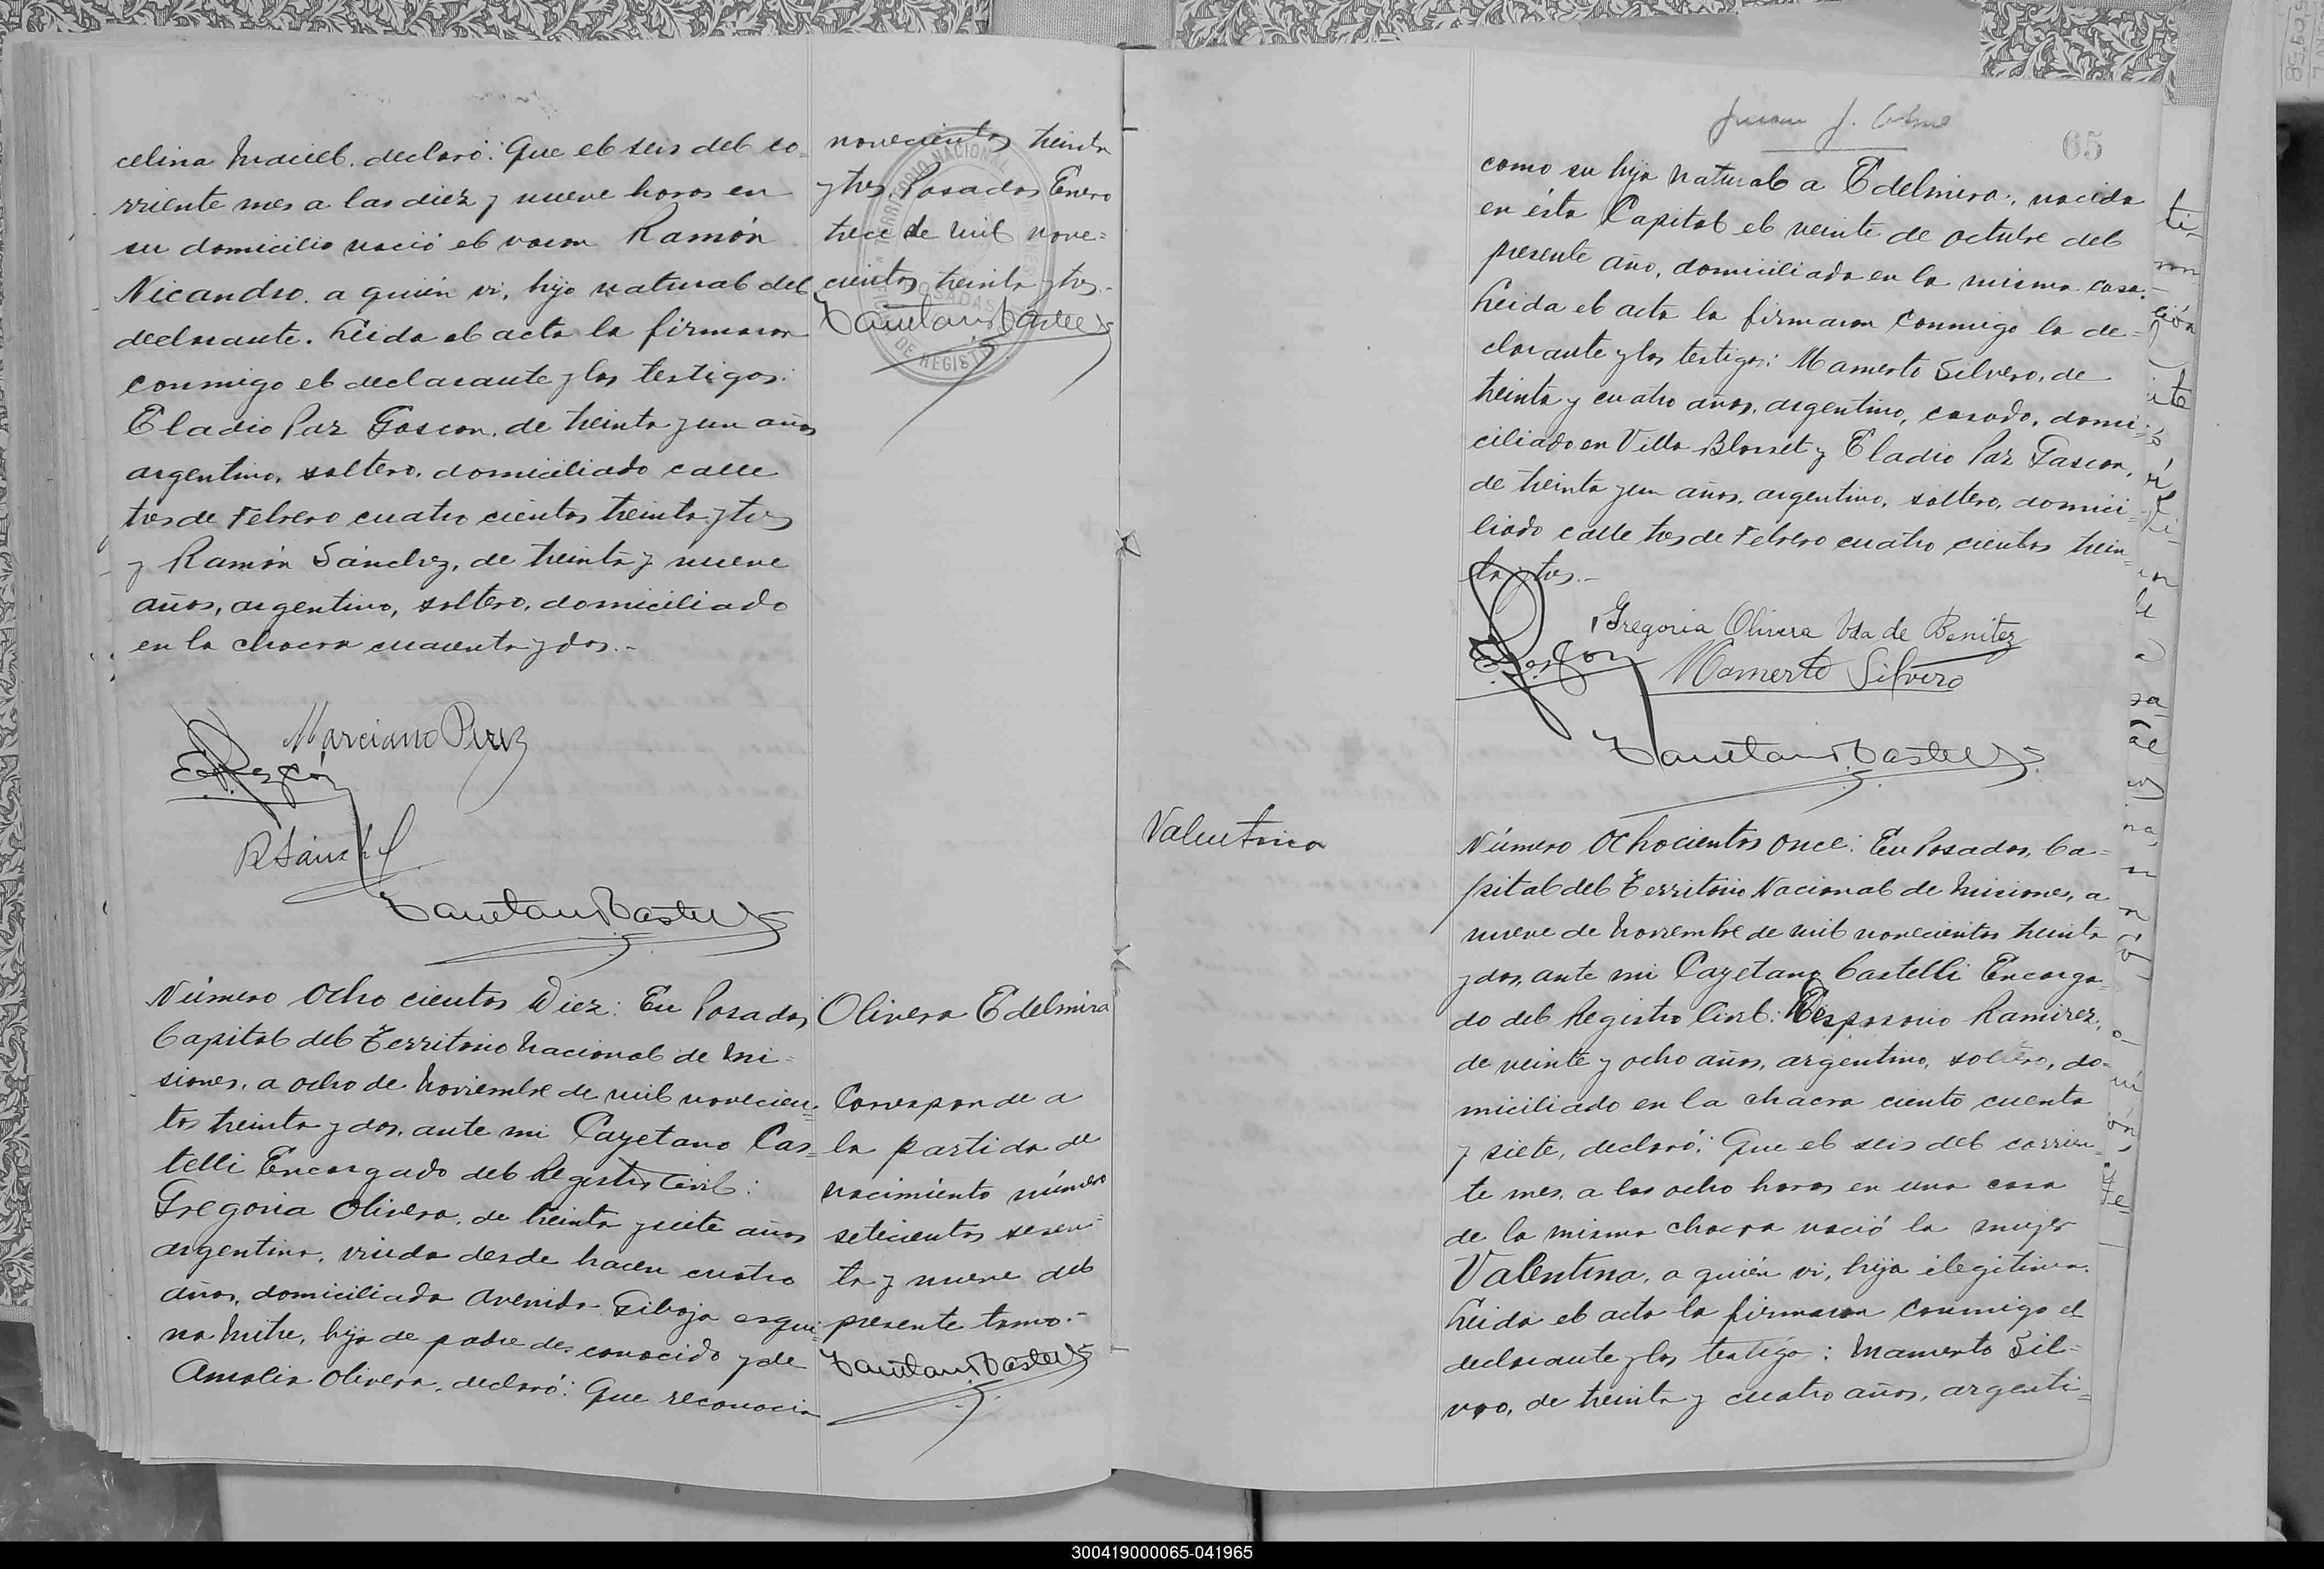 celina Maciel. declaró: Que el seis del co-
rriente mes a las diez y nueve horas en
su domicilio nació el varon Ramón
Nicandro. a quién vi, hijo natural del
declarante. Leida el acta la firmaron
conmigo el declarante y los testigos:
Eladio Paz Gascon, de treinta y un años
argentino, soltero, domiciliado calle
tres de Febrero cuatro cientos treinta y tres
y Ramón Sánchez, de treinta y nueve
años, argentino, soltero, domiciliado
en la chacra cuarenta y dos.-
Marciano Perez
R Sánchez
Cayetano Castelli
Número Ocho cientos Diez: En Posadas
Capital del Territorio Nacional de Mi=
siones, a ocho de Noviembre de mil novecien=
tos treinta y dos, ante mi Cayetano Cas=
telli Encargado del Registro Civil:
Gregoria Olivera, de treinta y siete años
argentina, viuda desde hacen cuatro
años, domiciliada Avenida Tiboja esqui=
na Mitre, hija de padre desconocido y de
Amalia Olivera, declaró: Que reconocia
novecientos treinta
y tres Posadas Enero
trece de mil nove=
cientos treinta y tres.-
Cayetano Castelli
TERRITORIO NACIONAL
POSADAS
DE REGISTRO
Olivera Edelmira
Corresponde a
la partida de
nacimiento número
setecientos sesen=
ta y nueve del
presente tomo.-
Cayetano Castelli
Juan J.
65
como su hija natural a Edelmira:, nacida
en ésta Capital el veinte de octubre del
presente año, domiciliada en la misma casa.
Leida el acta la firmaron conmigo la de=
clarante y los testigos: Mamerto Silvero, de
treinta y cuatro años, argentino, casado, domi=
ciliado en Villa Blosset y Eladio Paz Gascon,
de treinta y un años, argentino, soltero, domici=
liado calle tres de Febrero cuatro cientos trein=
ta y tres.-
Gregoria Olivera Vda de Benitez
Mamerto Silvero
Cayetano Castelli
Valentina
Número Ochocientos Once: En Posadas, Ca=
pital del Territorio Nacional de Misiones, a
nueve de Noviembre de mil novecientos treinta
y dos, ante mi Cayetano Castelli Encarga=
do del Registro Civil: Desposorio Ramirez,
de veinte y ocho años, argentino, soltero, do=
miciliado en la chacra ciento cuenta
y siete, declaró: Que el seis del corrien=
te mes, a las ocho horas en una casa
de la misma chacra nació la mujer
Valentina, a quién vi, hija ilegitima.
Leida el acta la firmaron conmigo el
declarante y los testigo: Mamerto Sil=
vero, de treinta y cuatro años, argenti=
300419000065-041965